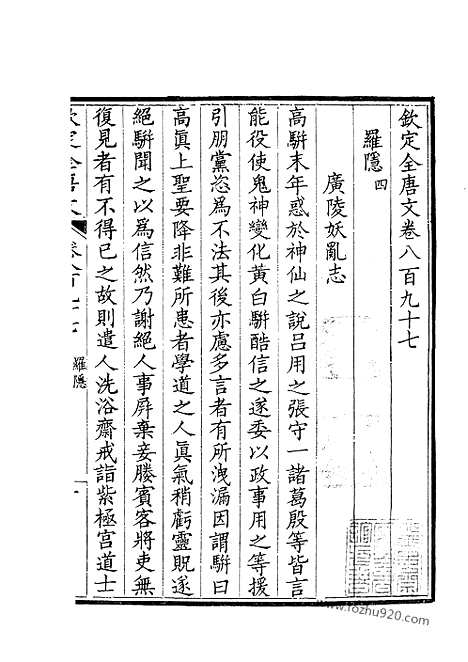 欽定全唐文卷八百九十七
羅隱四
廣陵妖亂志
高駢末年惑於神仙之說呂用之張守一諸葛殷等皆言
能役使鬼神變化黃白駢酷信之遂委以政事用之等援
引朋黨恣為不法其後亦慮多言者有所洩漏因謂駢曰
高眞上聖要降非難所患者學道之人眞氣稍虧靈貺遂
絕駢聞之以為信然乃謝絕人事屏棄妾媵賓客將吏無
復見者有不得已之故則遣人洗浴齋戒詣紫極宮道士
欽定全唐文
羅隱
www.fozhu920.com